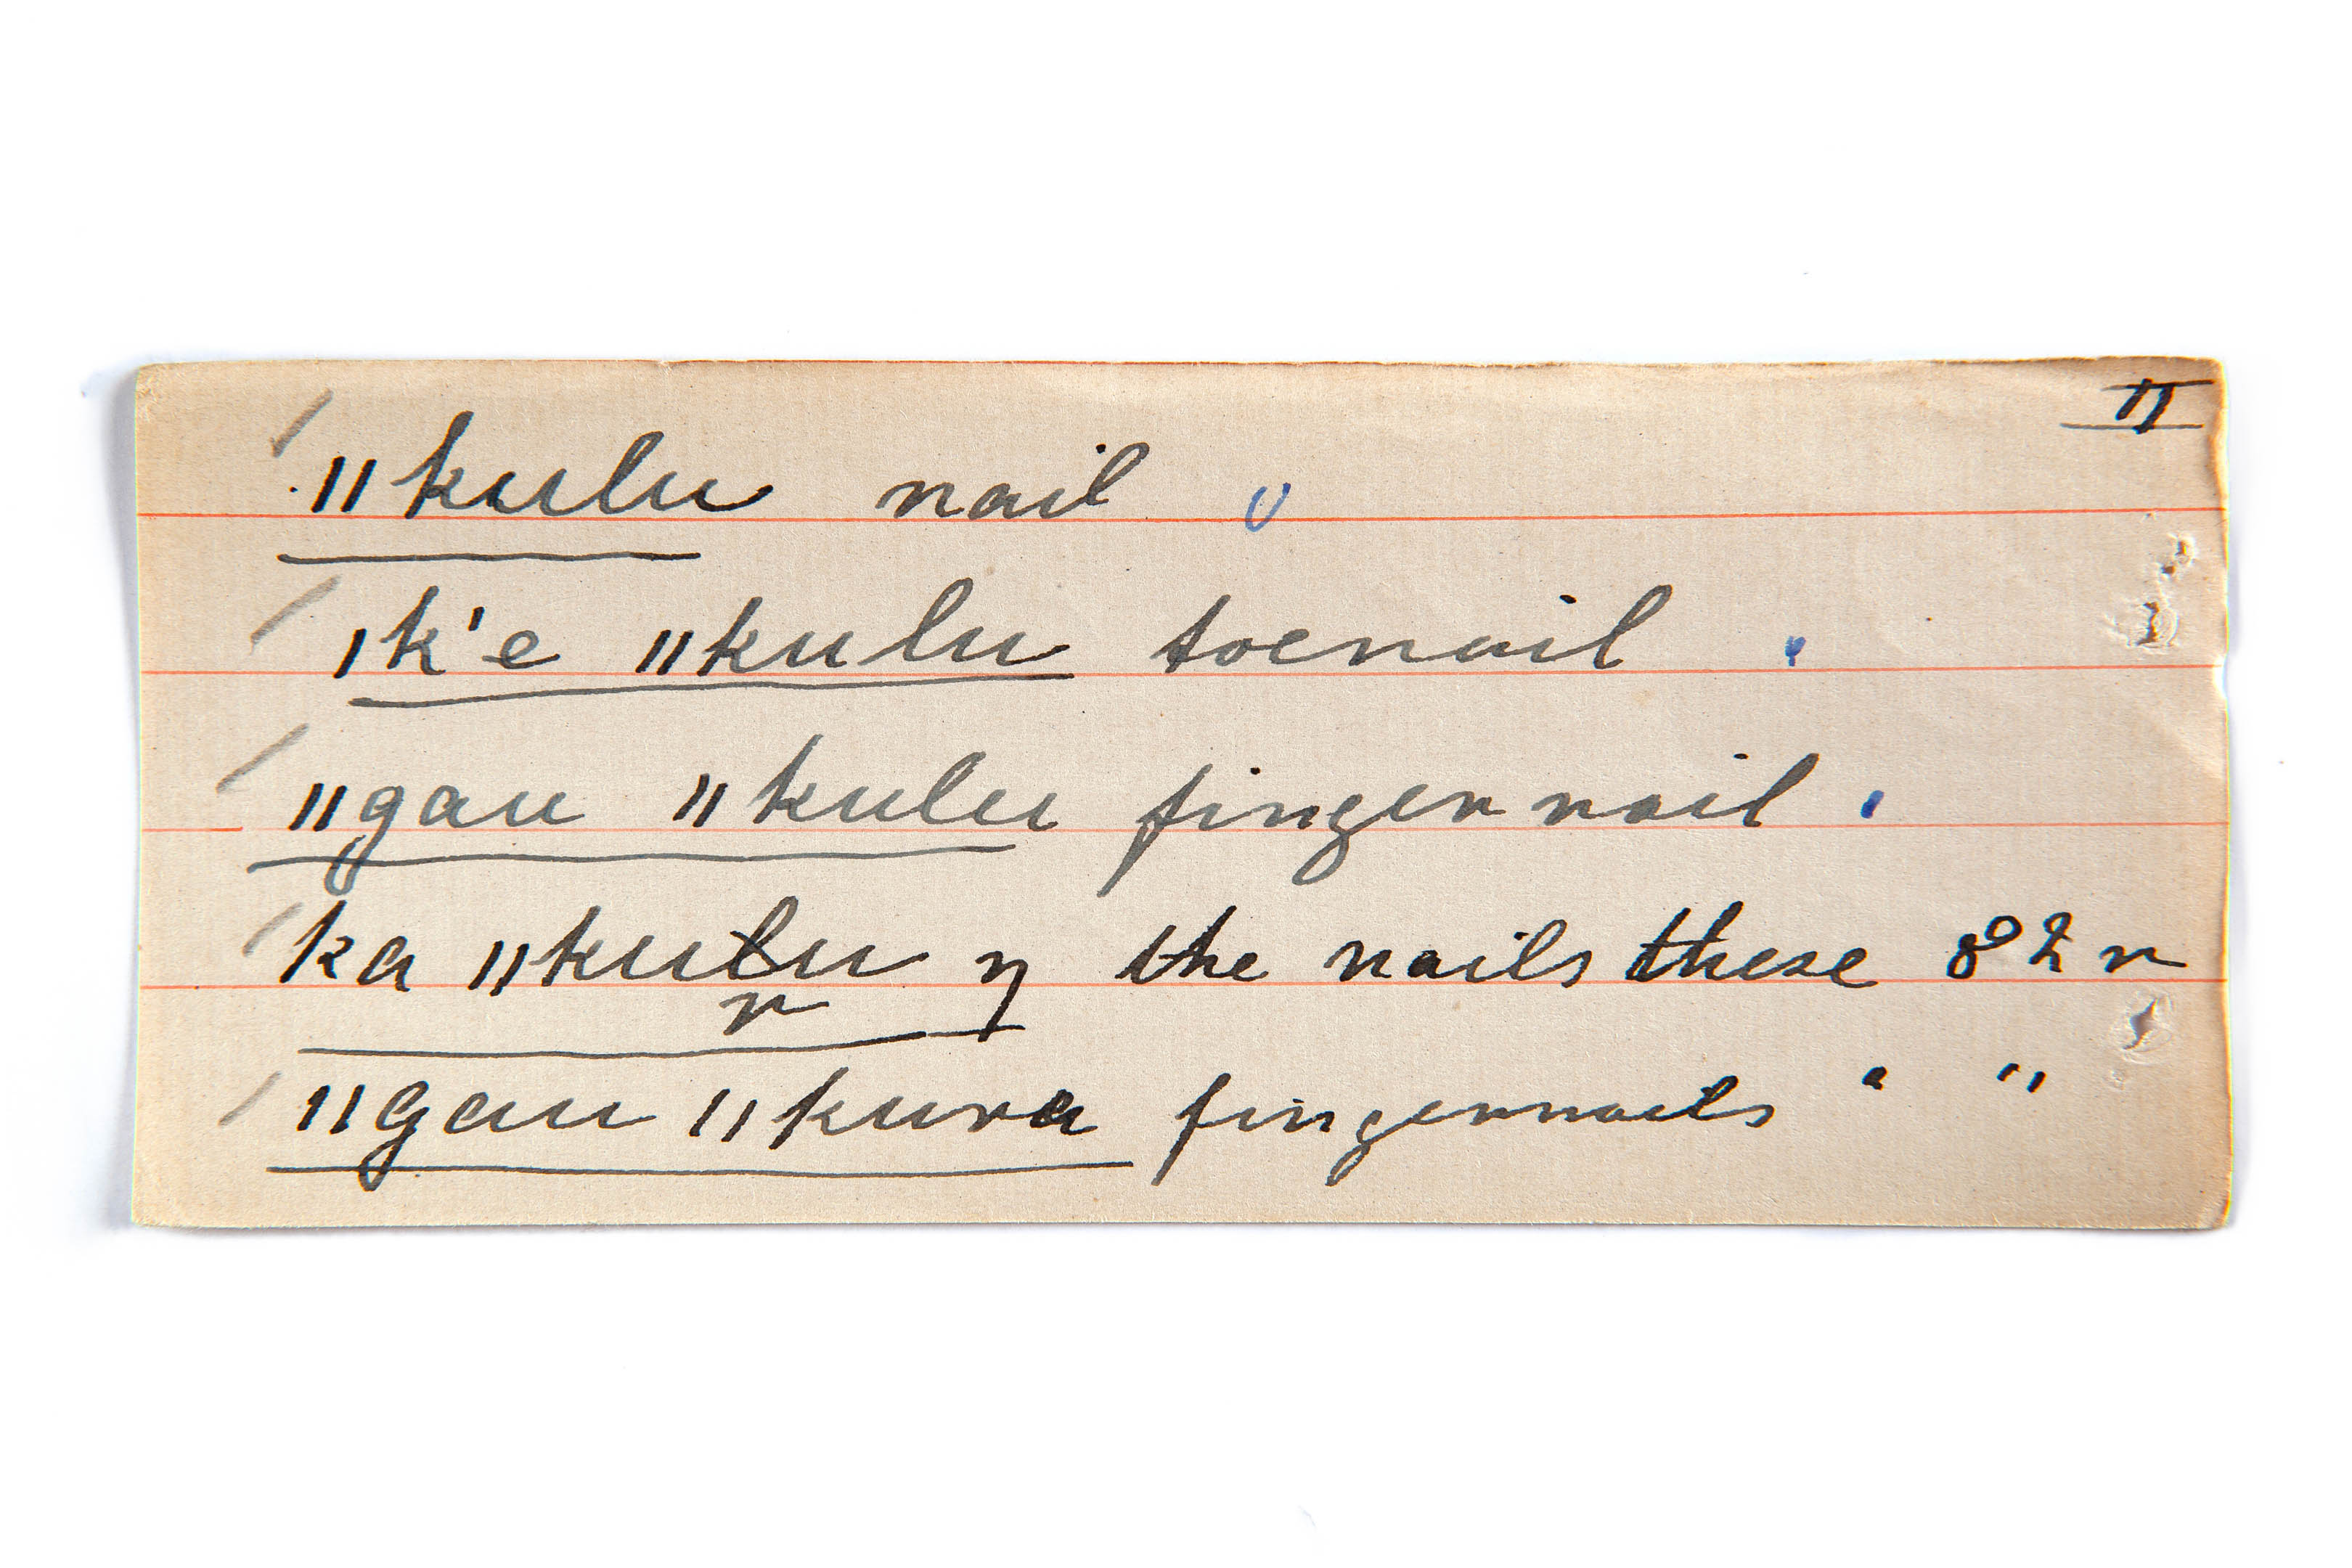 II
ǁkulu nail
ǀk'e ǁkulu toenail
ǁgau ǁkulu fingernail
ka ǁkulu ŋ the nails these 82 r
r
ǁgau ǁkura fingernails " "